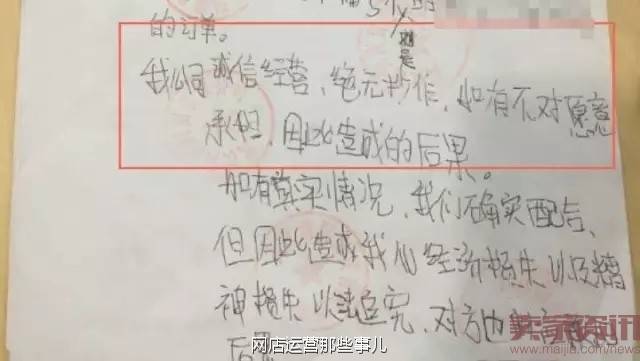 的订单。
我公司诚信经营，绝无炒作，如有不对愿意
承担，因此造成的后果。
如有真实情况，我们确实配合，
但因此造成我们经济损失以及精
神损失以法追究，对方也
后果
网店运营那些事儿
卖家资讯
www.maijia.com/news